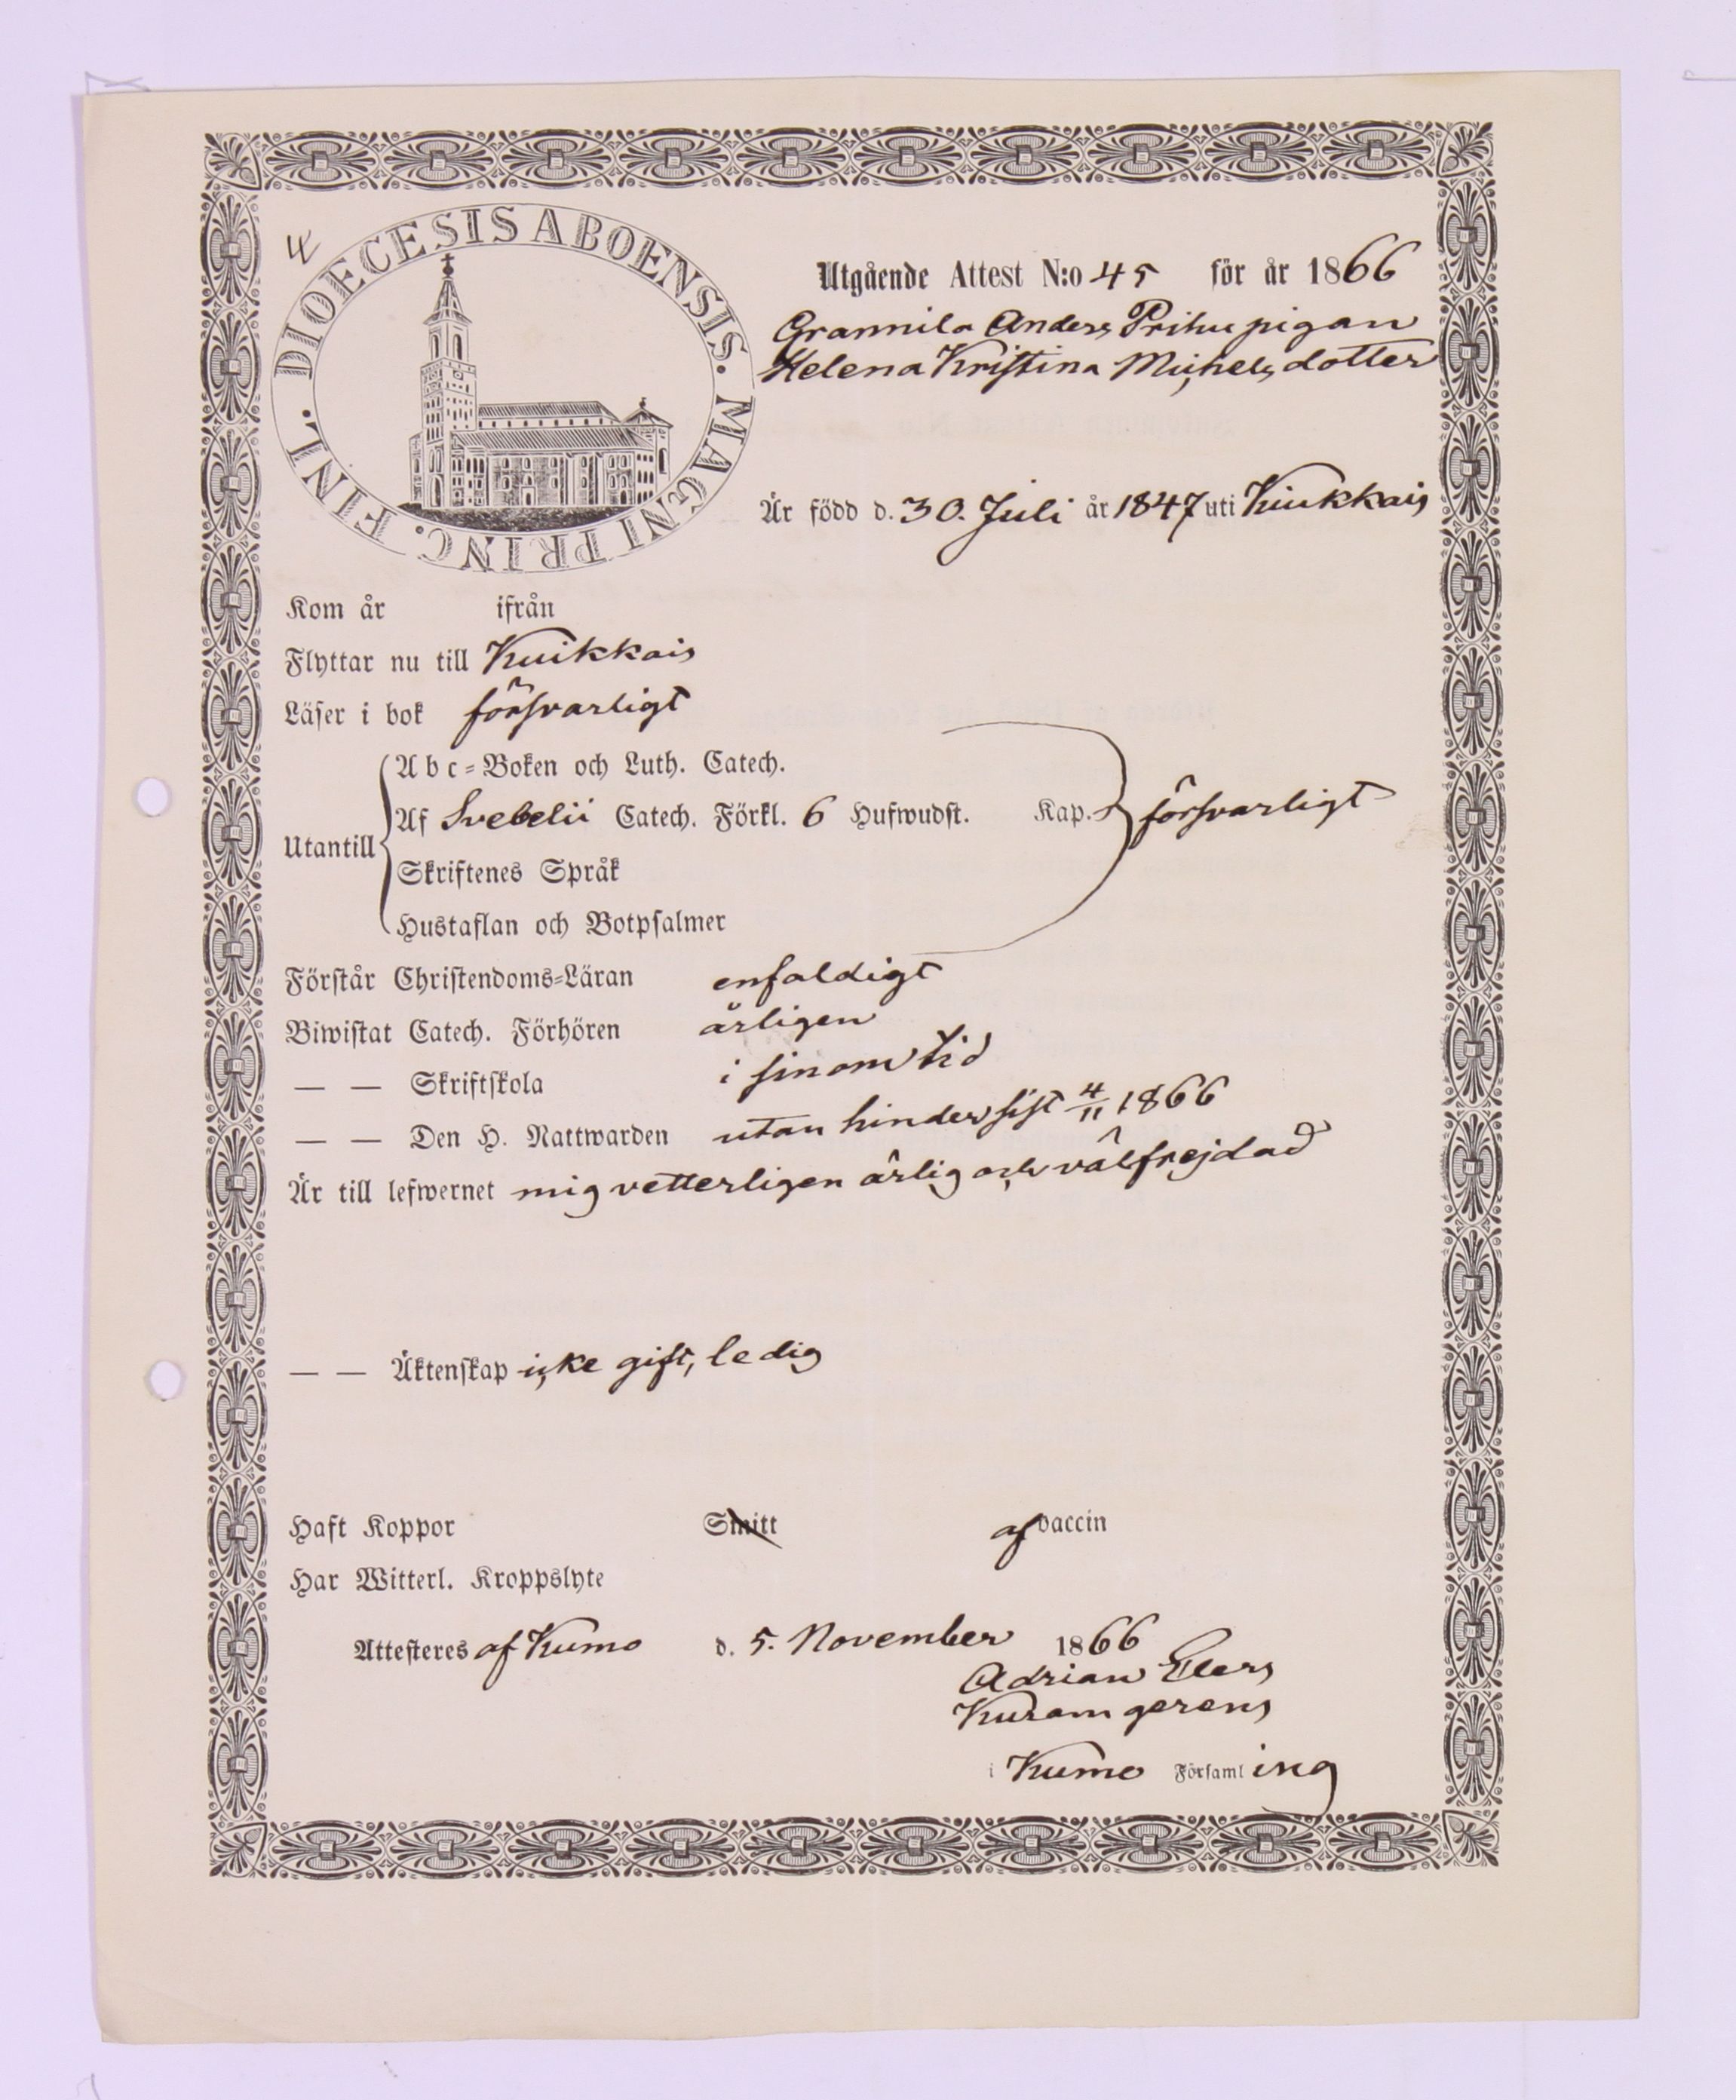 DIOECESIS ABOENSIS. MAGNI PRINC. FINL.
Utgående Attest N:o 45 för år 1866
Grannila Anders Prihu pigan
Helena Kristina Michelsdotter
Är född d. 30. Juli år 1847 uti Kiukkais
Kom år ifrån
Flyttar nu till Kuikkais
Läser i bok försvarligt
Utantill
Abc-Boken och Luth. Catech.
Af Svebelii Catech. Förkl. 6 Hufwudst. Kap. försvarligt
Skriftenes Språk
Hustaflan och Botpsalmer
Förstår Christendoms-Läran enfaldigt
Biwistat Catech. Förhören årligen
— — Skriftskola i sinom tid
— — Den H. Nattwarden utan hinder sist 4/11 1866
Är till lefwernet mig vetterligen ärlig och välfrejdad
— — Äktenskap icke gift, ledig
Haft Koppor Smitt af vaccin
Har Witterl. Kroppslyte
Attesteres af Kumo d. 5. November 1866
Adrian Elers
Kuram gerens
i Kumo Församling